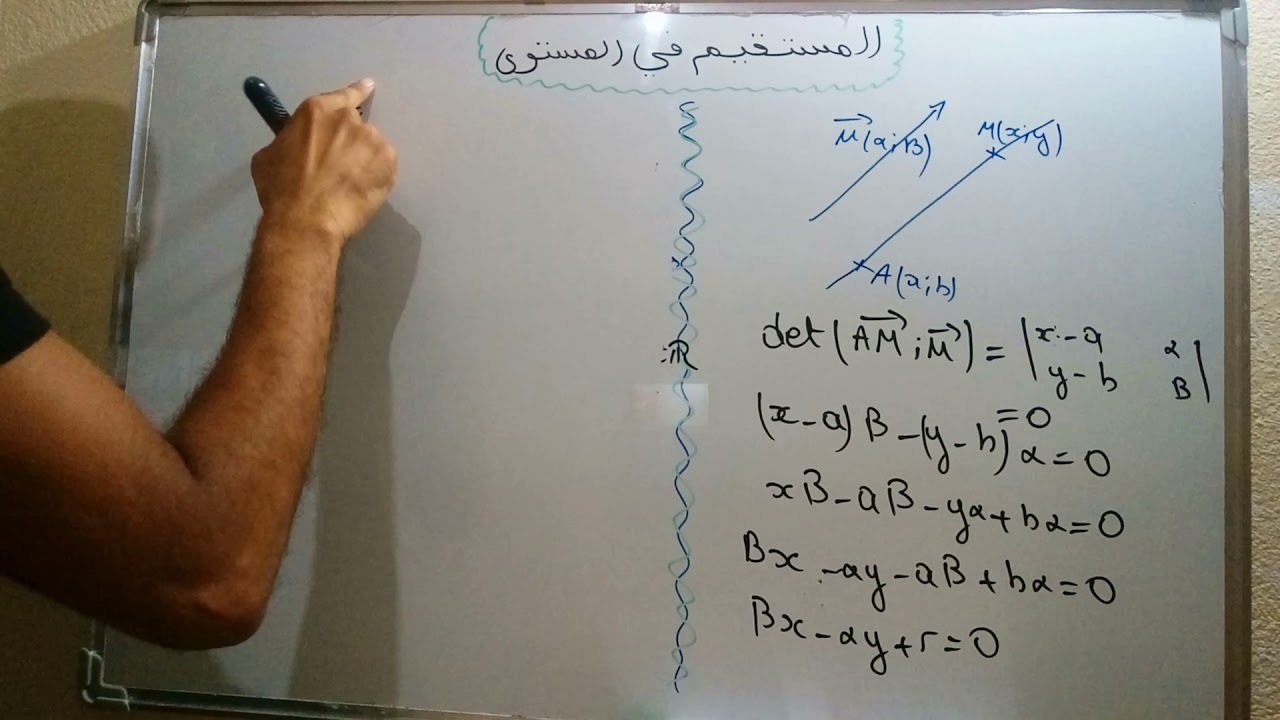 المستقيم في المستوى
u⃗(α;β)
M(x;y)
A(a;b)
det(AM⃗;u⃗) = |x-a α|
|y-b β|
=0
(x-a)β-(y-b)α=0
xβ-aβ-yα+bα=0
βx-αy-aβ+bα=0
βx-αy+r=0